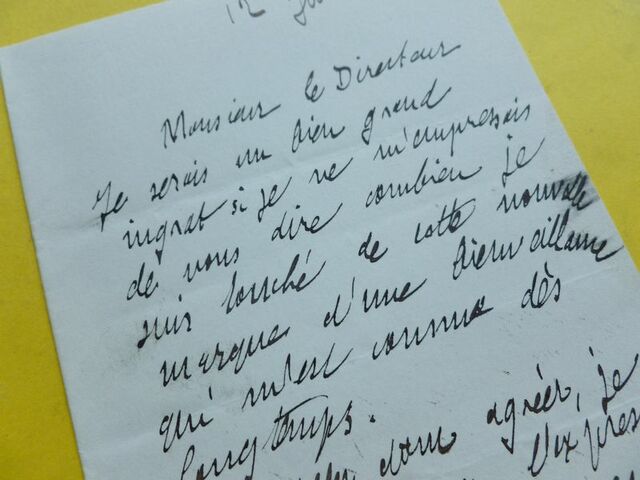 12
Monsieur le Directeur
Je serais un bien grand
ingrat si je ne m'empressais
de vous dire combien je
suis touché de cette nouvelle
marque d'une bienveillance
qui m'est connue dès
longtemps.
donc agréer, je
l'expres